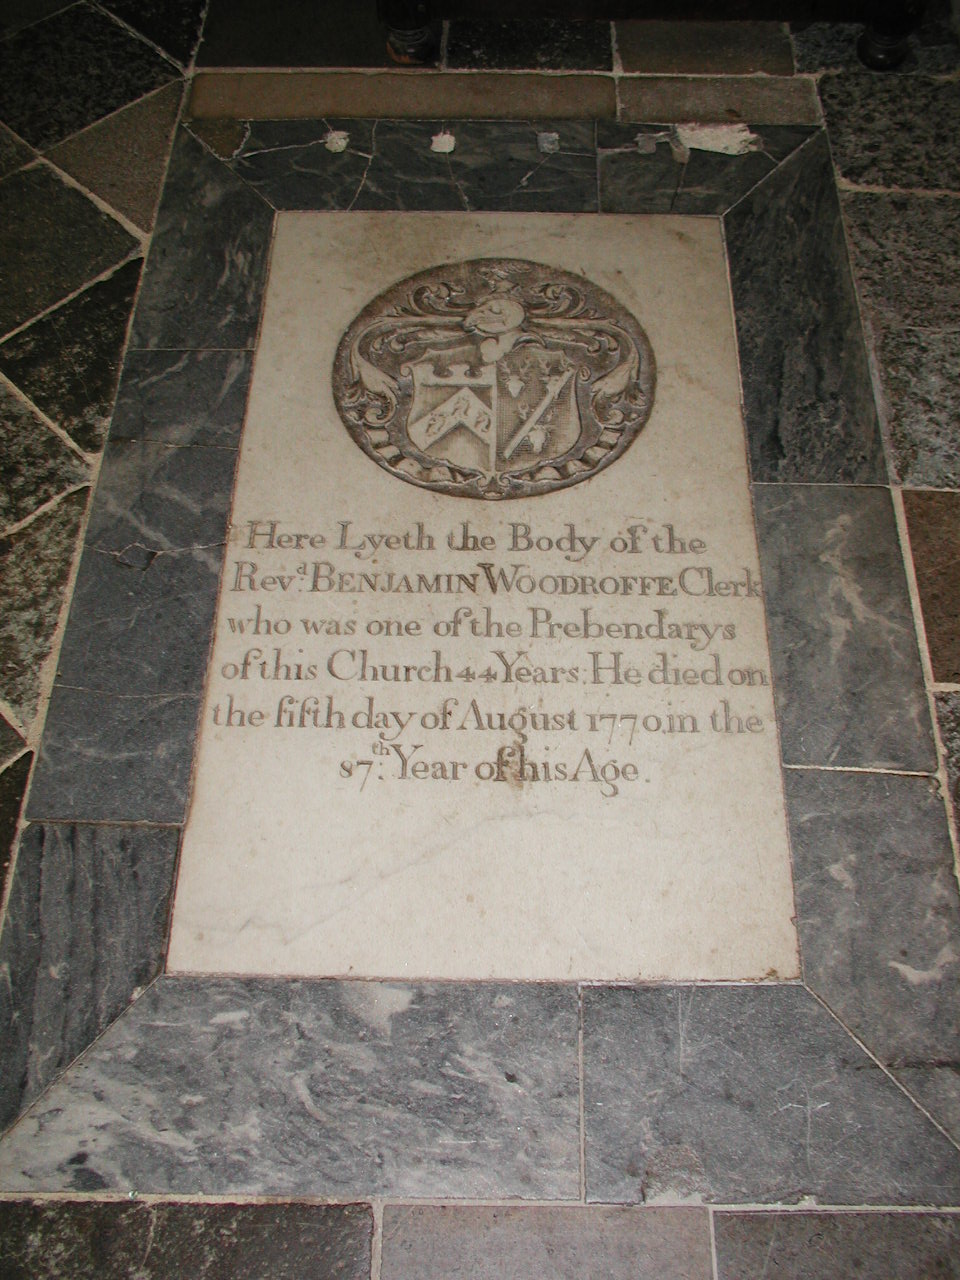 Here Lyeth the Body of the
Rev.d BENJAMIN WOODROFFE Clerk
who was one of the Prebendarys
of this Church 44 Years: He died on
the fifth day of August 1770, in the
87.th Year of his Age.